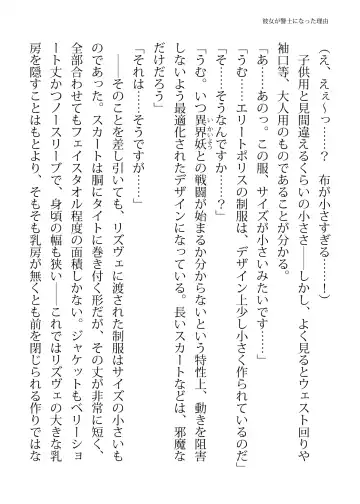 彼女が警士になった理由
(え、えぇ〜っ……？　布が小さすぎる……！)
　子供用と見間違えるくらいの小ささ――しかし、よく見るとウェスト回りや
袖口等、大人用のものであることが分かる。
「あ……あのっ。この服、サイズが小さいみたいです……」
「うむ……エリートポリスの制服は、デザイン上少し小さく作られているのだ」
「そ……そうなんですか……？」
「うむ。いつ異界妖との戦闘が始まるか分からないという特性上、動きを阻害
しないよう最適化されたデザインになっている。長いスカートなどは、邪魔な
だけだろう」
「それは……そうですが……」
　――そのことを差し引いても、リズヴェに渡された制服はサイズの小さいも
のであった。スカートは胴にタイトに巻き付く形だが、その丈が非常に短く、
全部合わせてもフェイスタオル程度の面積しかない。ジャケットもベリーショ
ート丈かつノースリーブで、身頃の幅も狭い――これではリズヴェの大きな乳
房を隠すことはもとより、そもそも乳房が無くとも前を閉じられる作りではな